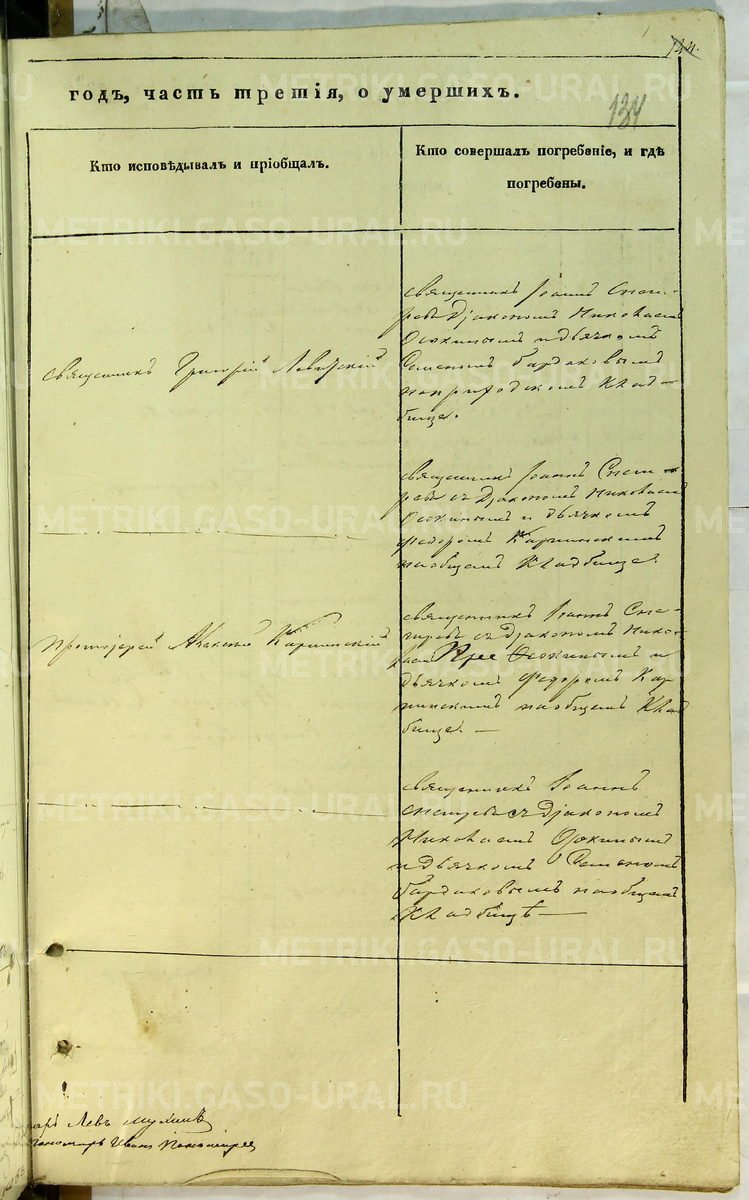 144.
134
годъ, часть третія, о умершихъ.
Кто исповѣдывалъ и пріобщалъ.
Кто совершалъ погребеніе, и гдѣ
погребены.
священникъ Григорій Левитскій
священникъ Іоаннъ Снеги-
ревъ Діакономъ Николаемъ
Осокинымъ и дьячкомъ
Семеномъ Бардаковымъ
на приходскомъ клад-
бище.
священникъ Іоаннъ Снеги-
ревъ съ Діакономъ Николаемъ
Осокинымъ и дьячкомъ
Федоромъ Карпинскимъ
на общемъ кладбище.
протоіерей Карпинскій
священникъ Іоаннъ Сне-
гиревъ съ Діакономъ Нико-
лаемъ Осокинымъ и
дьячкомъ Федоромъ Кар-
пинскимъ на общемъ клад
бище. —
священникъ Іоаннъ
Снегиревъ съ Діакономъ
Николаемъ Осокинымъ
и дьячкомъ Семеномъ
Бардаковымъ на общемъ
кладбищѣ —
Левъ
пономарь Иванъ
METRIKI.GASO-URAL.RU